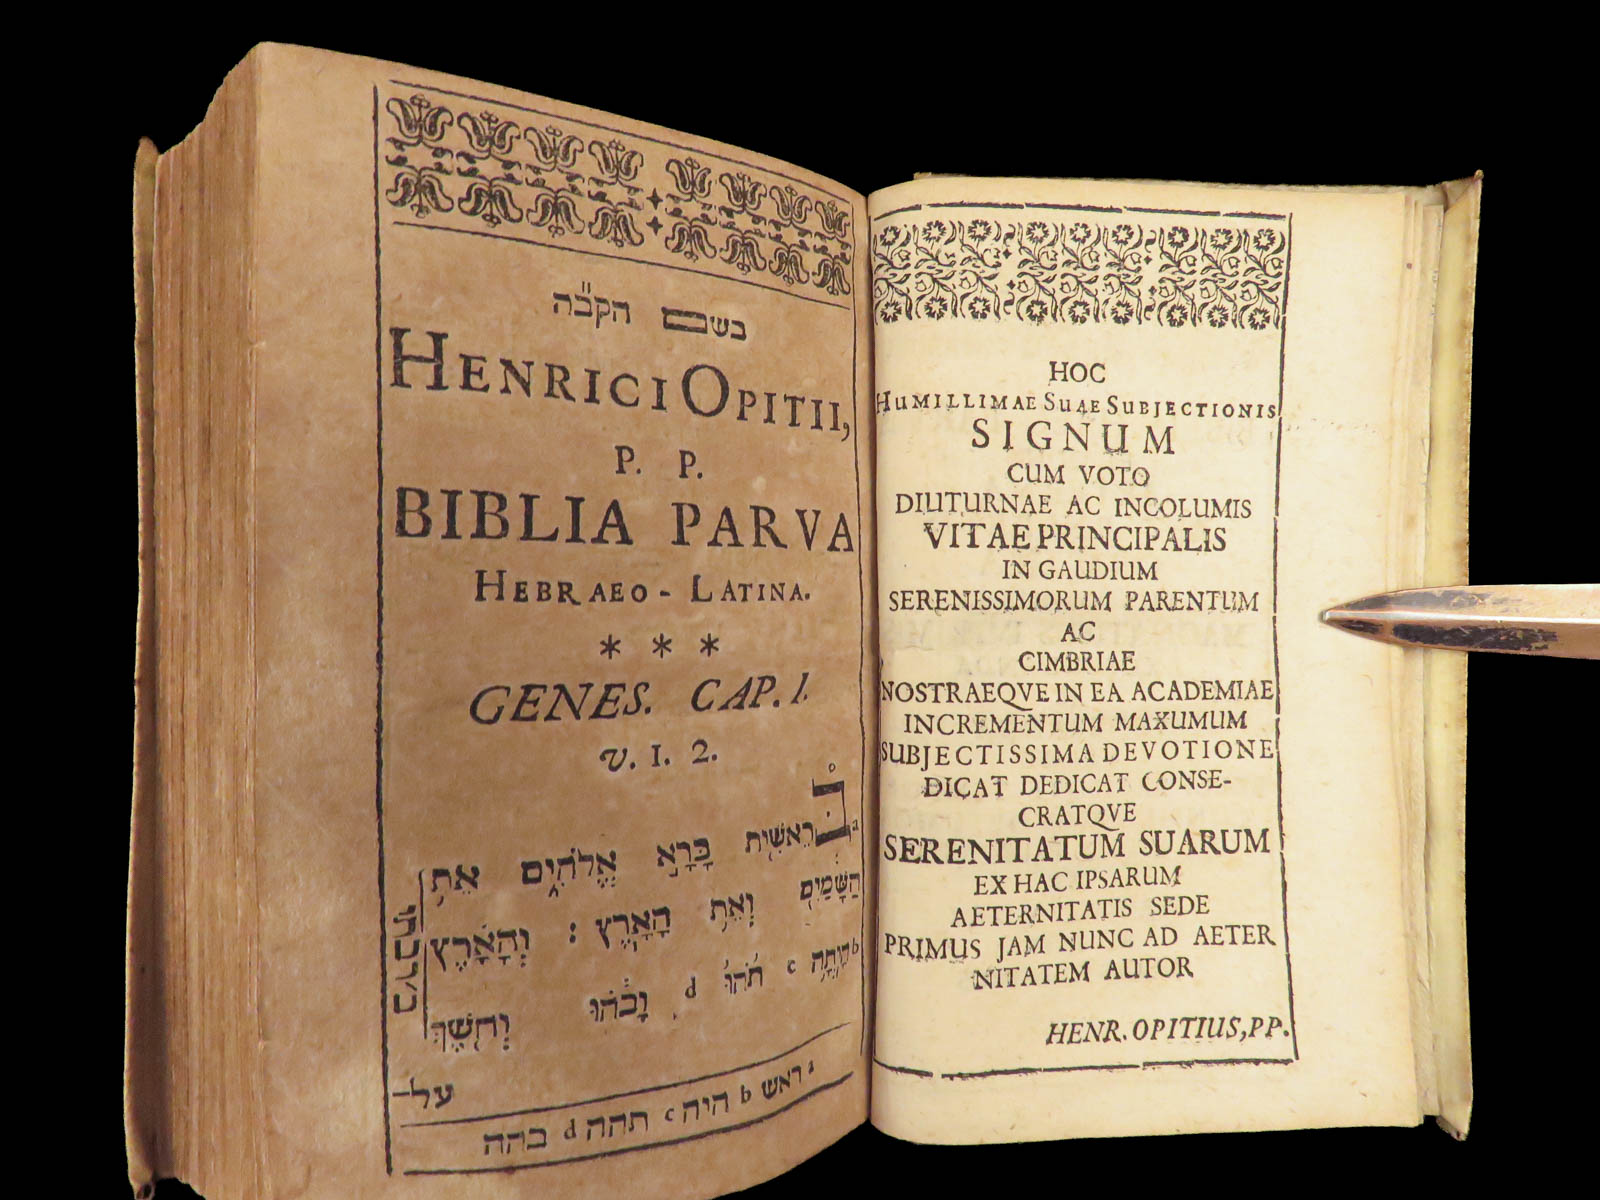 בשם הקב״ה
HENRICI OPITII,
P. P.
BIBLIA PARVA
HEBRAEO - LATINA.
* * *
GENES. CAP. I.
v. I. 2.
בְּרֵאשִׁ֖ית בָּרָ֣א אֱלֹהִ֑ים אֵ֥ת
הַשָּׁמַ֖יִם וְאֵ֥ת הָאָֽרֶץ : וְהָאָ֗רֶץ
b הָיְתָ֥ה c תֹ֙הוּ֙ d וָבֹ֔הוּ וְחֹ֖שֶׁךְ
עַל־
a ראש b היה c תהה d בהה
HOC
HUMILLIMAE SUAE SUBJECTIONIS
SIGNUM
CUM VOTO
DIUTURNAE AC INCOLUMIS
VITAE PRINCIPALIS
IN GAUDIUM
SERENISSIMORUM PARENTUM
AC
CIMBRIAE
NOSTRAEQVE IN EA ACADEMIAE
INCREMENTUM MAXUMUM
SUBJECTISSIMA DEVOTIONE
DICAT DEDICAT CONSE-
CRATQVE
SERENITATUM SUARUM
EX HAC IPSARUM
AETERNITATIS SEDE
PRIMUS JAM NUNC AD AETER
NITATEM AUTOR
HENR. OPITIUS, PP.